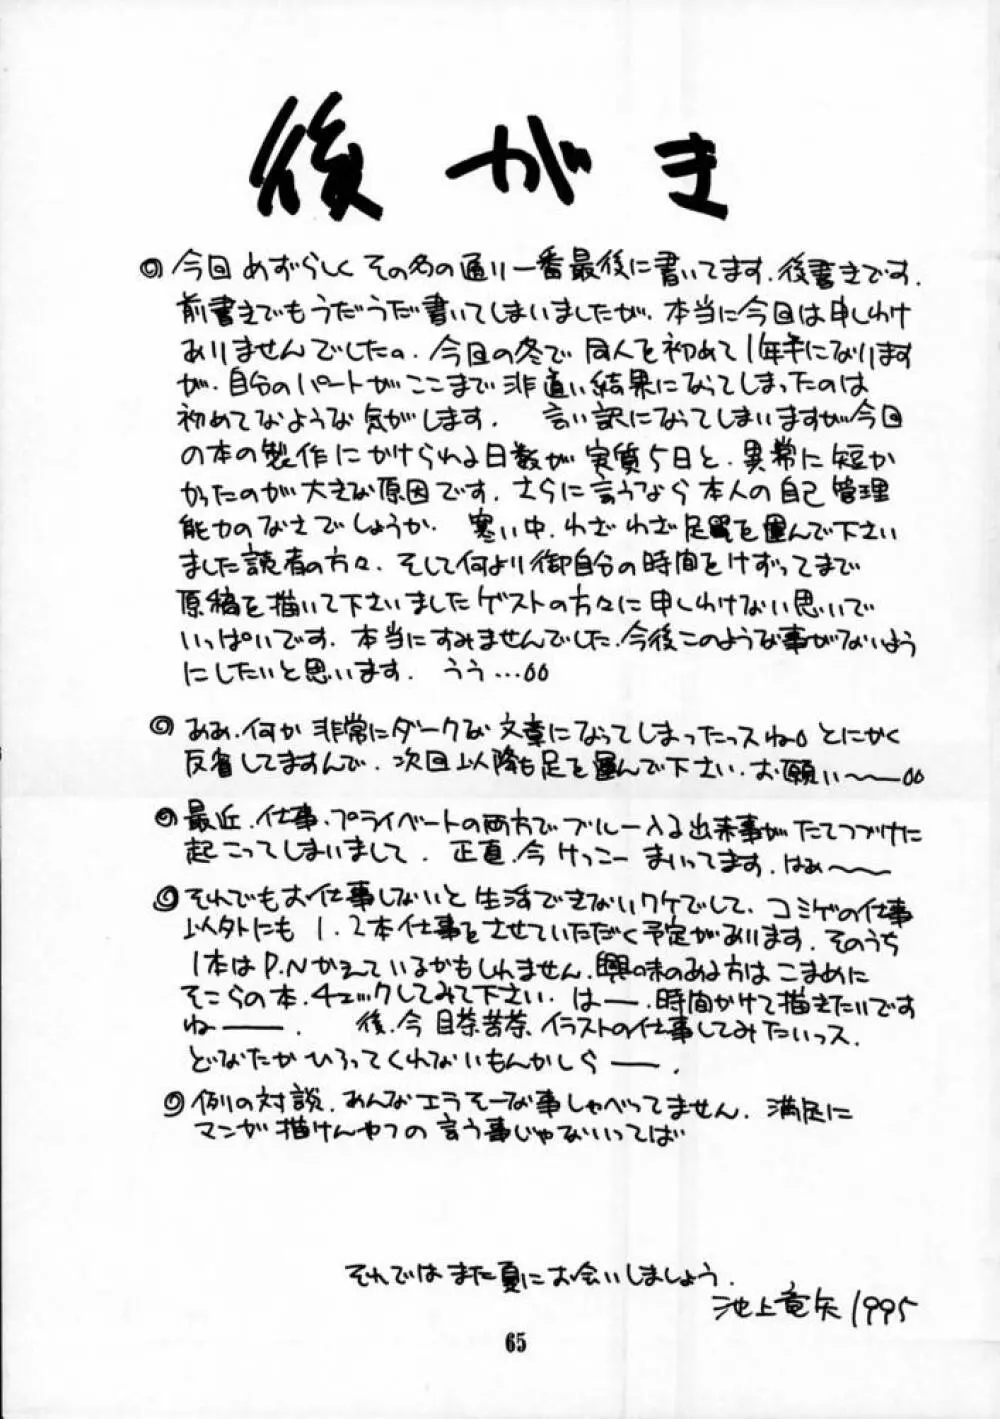 後がき
◎今回めずらしくその名の通り一番最後に書いてます.後書きです.
前書きでもうだうだ書いてしまいましたが、本当に今回は申しわけ
ありませんでした。今回の冬で同人を初めて1年半になりますが
が、自分のパートがここまで非道い結果になってしまったのは
初めてなような気がします. 言い訳になってしまいますが今回
の本の製作にかけられる日数が実質5日と、異常に短か
かったのが大きな原因です.さらに言うなら本人の自己管理
能力のなさでしょうか. 寒い中、わざわざ足を運んで下さい
ました読者の方々、そして何より御自分の時間をけずってまで
原稿を描いて下さいましたゲストの方々に申しわけない思いで
いっぱいです.本当にすみませんでした.今後このような事がないよう
にしたいと思います. うう…
◎ああ、何か非常にダークな文章になってしまったっスね。とにかく
反省してますんで、次回以降も足を運んで下さい.お願い〜
◎最近、仕事・プライベートの両方でブルー入る出来事がたてつづけに
起こってしまいまして、正直、今けっこーまいってます.はぁ〜
◎それでもお仕事しないと生活できないワケでして、コミケの仕事
以外にも1、2本仕事をさせていただく予定があります.そのうち
1本はP.Nかえているかもしれません.興味のある方はこまめに
そこらの本、チェックしてみて下さい.はー、時間かけて描きたいです
ねー. 後、今目茶苦茶、イラストの仕事してみたいっス.
どなたかひろってくれないもんかしらー.
◎例の対談、あんなエラそーな事しゃべってません.満足に
マンガ描けんヤツの言う事じゃないってば
それではまた夏にお会いしましょう.
池上竜矢1995
65